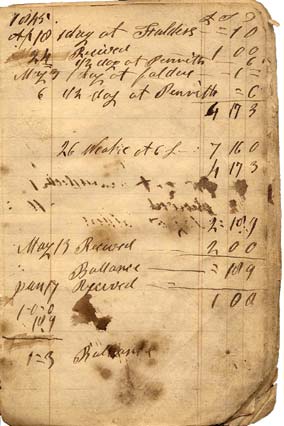 1845 £ S D
Apl 18 1 day at Falders = 1 0
24 Recived 1 0 0
1/2 day at Penrith = 6
May 3 1 day at falders = 1 =
6 1/2 day at Penrith = 6
4 17 3
26 Weaks at 6 7 16 0
4 17 3
2 = 18 9
May 13 Receved 2 0 0
Ballance = 18 9
Receved 1 0 0
1 = 0 = 0
18 9
1 = 3 Ballance